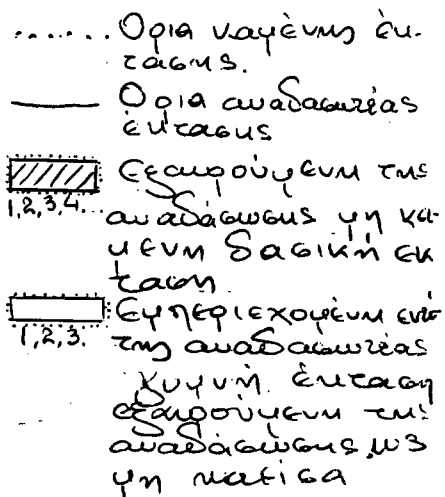 Ορια καμένης έκ-
τασης.
Ορια αναδασωτέας
έκτασης
Εξαιρούμενη της
1,2,3,4... αναδάσωσης μη κα-
μενη δασική εκ
ταση
Εμπεριεχομένη εντός
1,2,3. της αναδασωτέας
γυμνή έκταση
εξαιρούμενη της
αναδάσωσης ως
μη καείσα